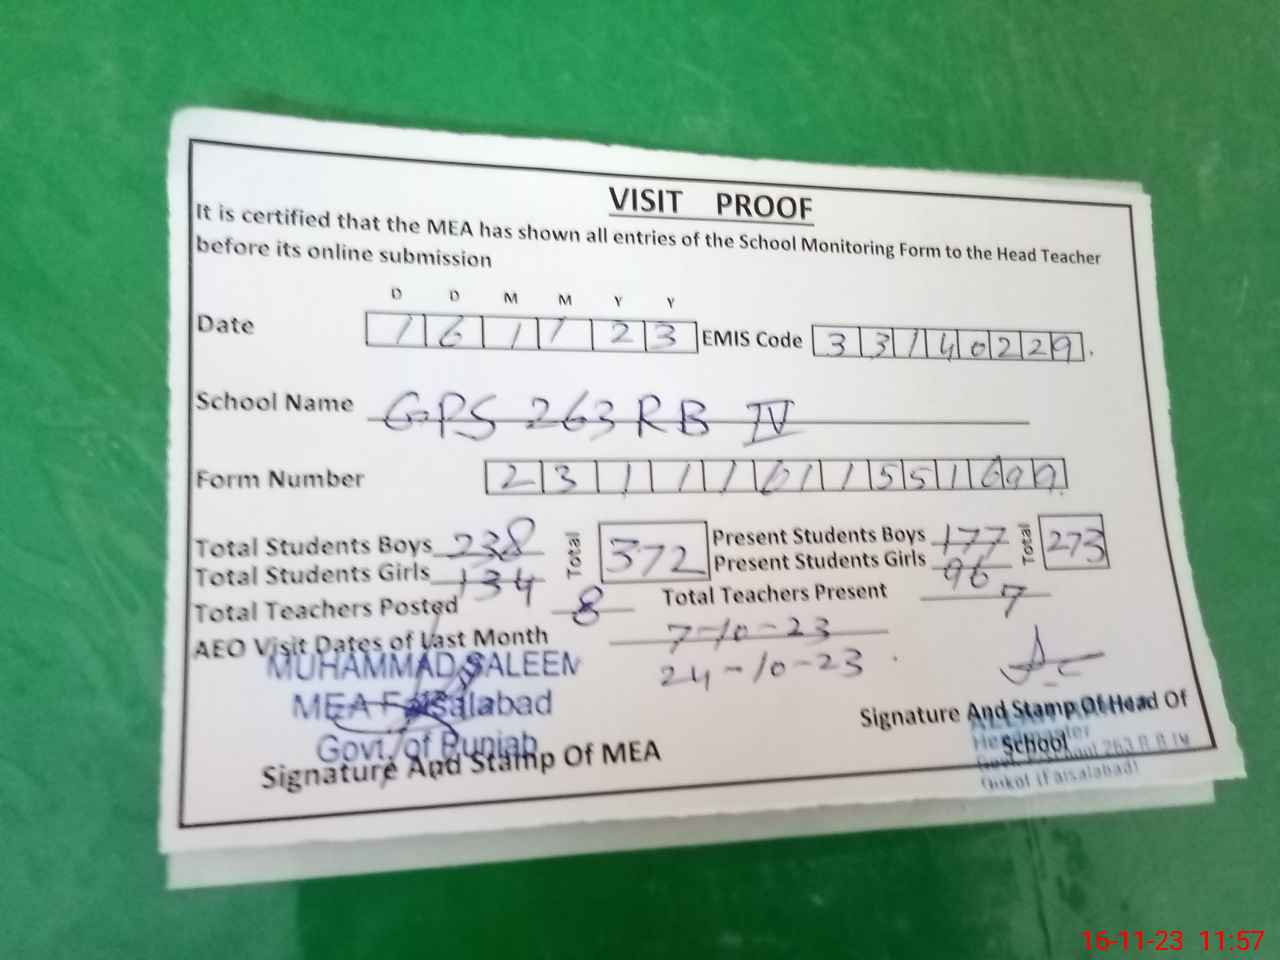 VISIT PROOF
It is certified that the MEA has shown all entries of the School Monitoring Form to the Head Teacher
before its online submission
D D M M Y Y
Date 1 6 1 1 2 3 EMIS Code 3 3 1 4 0 2 2 9
School Name GPS 263 RB IV
Form Number 2 3 1 1 1 6 1 1 5 5 1 6 9 9
Total Students Boys 238 Total 372 Present Students Boys 177 Total 273
Total Students Girls 134 Present Students Girls 96
Total Teachers Posted 8 Total Teachers Present 7
AEO Visit Dates of Last Month 7-10-23
24-10-23
MUHAMMAD SALEEM
MEA Faisalabad
Govt. of Punjab
Signature And Stamp Of MEA
Signature And Stamp Of Head Of
School
263 R B IV
(Faisalabad)
16-11-23 11:57